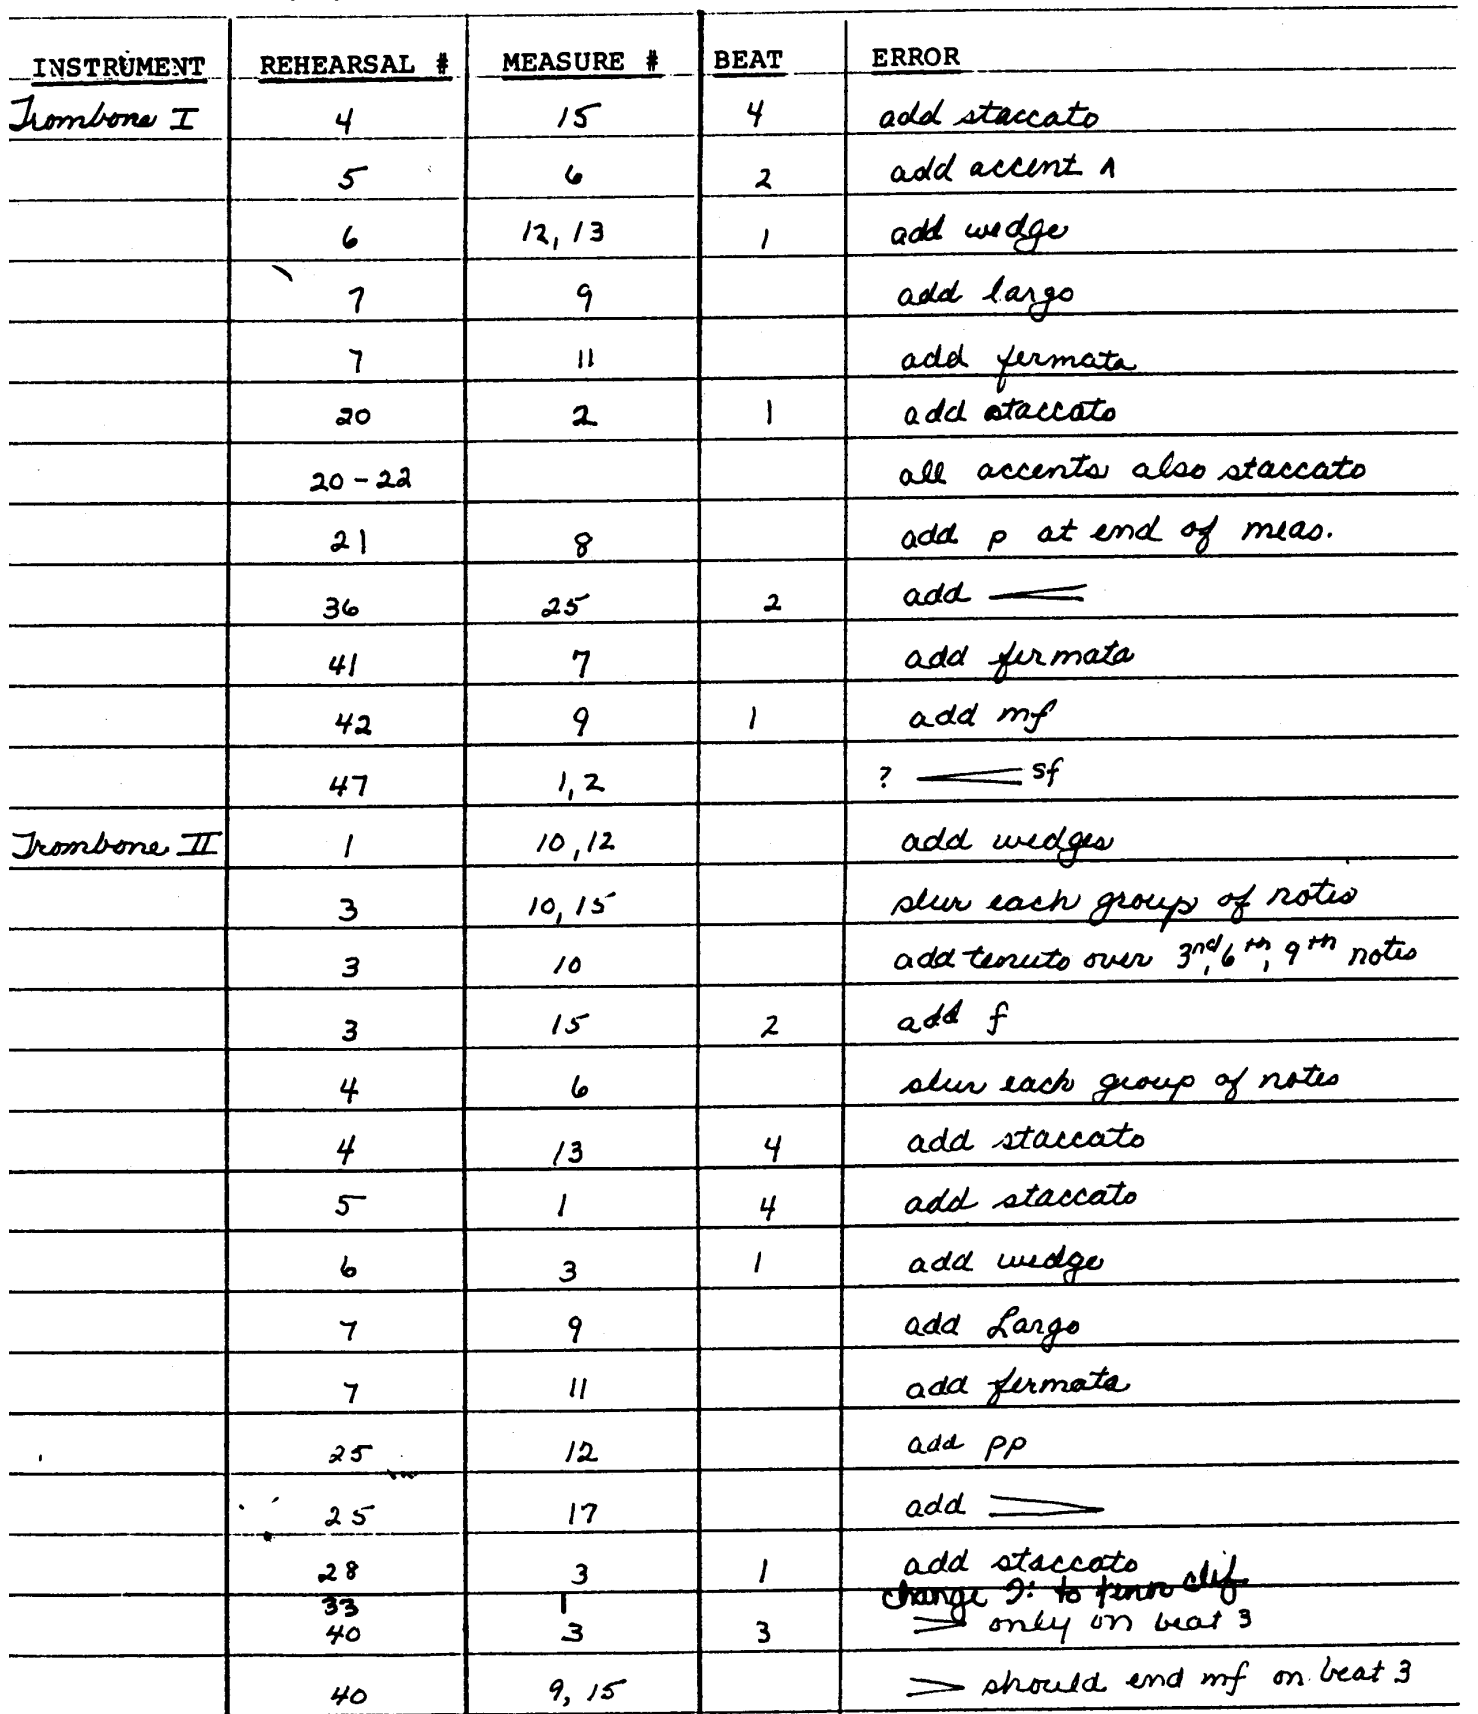 INSTRUMENT REHEARSAL # MEASURE # BEAT ERROR
Trombone I 4 15 4 add staccato
5 6 2 add accent ʌ
6 12, 13 1 add wedge
7 9 add largo
7 11 add fermata
20 2 1 add staccato
20-22 all accents also staccato
21 8 add p at end of meas.
36 25 2 add <
41 7 add fermata
42 9 1 add mf
47 1, 2 ? < sf
Trombone II 1 10, 12 add wedges
3 10, 15 slur each group of notes
3 10 add tenuto over 3nd, 6th, 9th notes
3 15 2 add f
4 6 slur each group of notes
4 13 4 add staccato
5 1 4 add staccato
6 3 1 add wedge
7 9 add Largo
7 11 add fermata
25 12 add pp
25 17 add >
28 3 1 add staccato
33 1 change 𝄢 to tenor clef
40 3 3 > only on beat 3
40 9, 15 > should end mf on beat 3